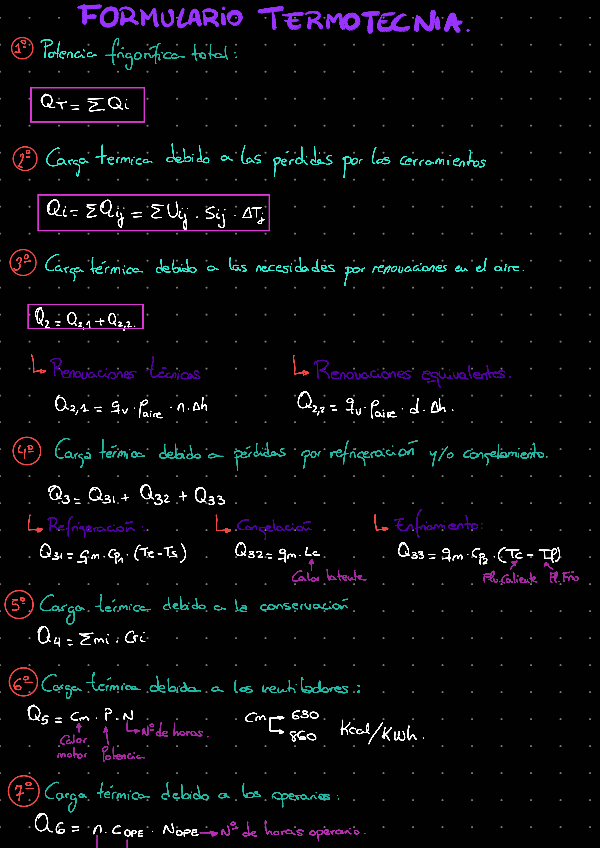 FORMULARIO TERMOTECNIA.
1º Potencia frigorífica total:
QT = ΣQi
2º Carga termica debido a las pérdidas por los cerramientos
Qi = ΣQij = ΣUij · Sij · ΔTj
3º Carga térmica debido a las necesidades por renovaciones en el aire.
Q2 = Q2,1 + Q2,2.
Renovaciones técnicas Renovaciones equivalentes.
Q2,1 = qv · ρaire · n · Δh Q2,2 = qv · ρaire · d · Δh.
4º Carga térmica debido a pérdidas por refrigeración y/o congelamiento.
Q3 = Q31 + Q32 + Q33
Refrigeración: Congelación Enfriamiento:
Q31 = qm · Cp1 · (Te - Ts) Q32 = qm · Lc Q33 = qm · Cp2 · (Tc - Tf)
Calor latente Flu.Caliente Fl. Frio
5º Carga térmica debido a la conservación
Q4 = Σmi · Cri
6º Carga termica debida a los ventiladores:
Q5 = Cm · P · N Cm 630
860 Kcal/Kwh.
Nº de horas.
Calor motor Potencia
7º Carga térmica debido a los operarios:
Q6 = n · COPE · NOPE → Nº de horas operario.